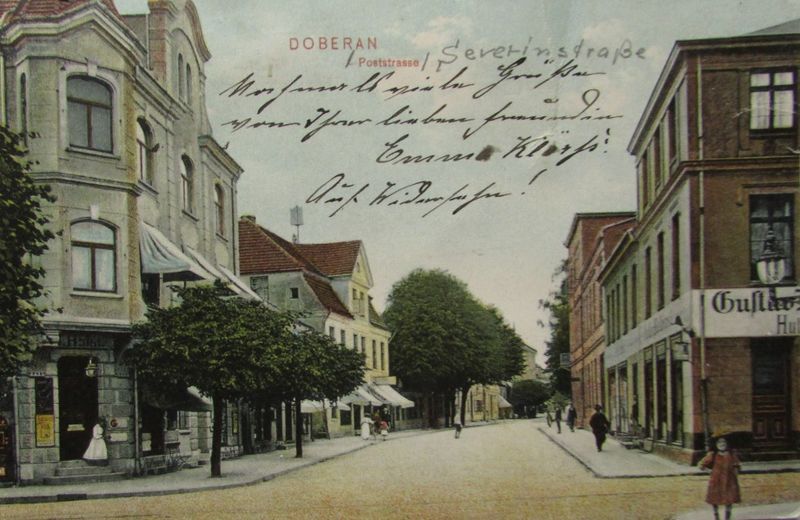 DOBERAN
Poststrasse / Severinstraße
Nochmals viele Grüße
von Ihrer lieben freundin
Emma
Auf Widersehn!
Gustav
Hu